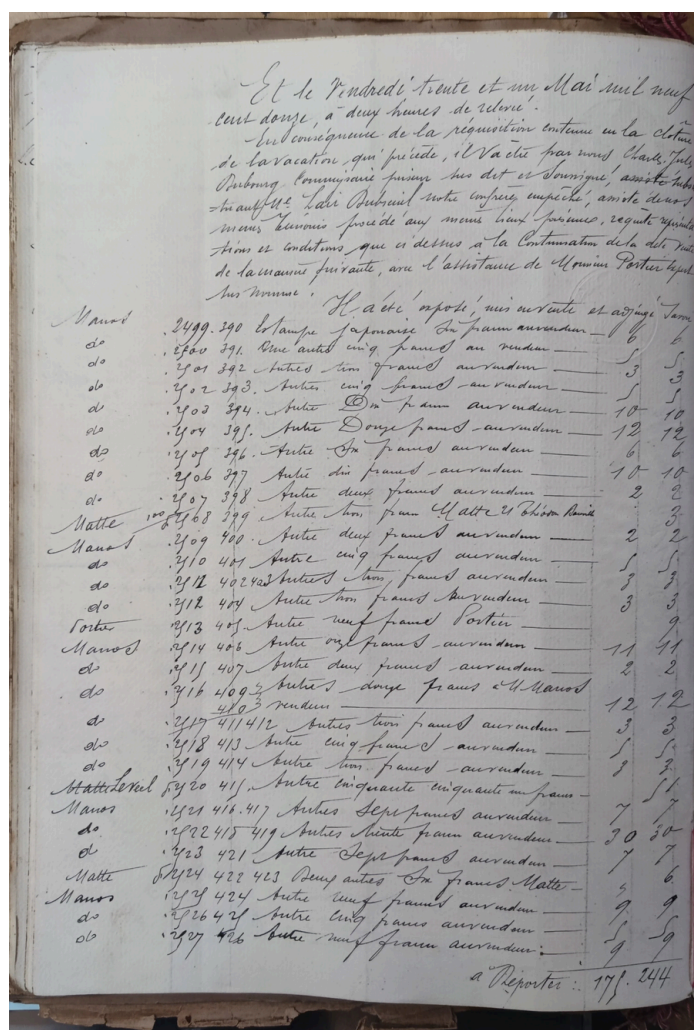 Et le Vendredi trente et un Mai mil neuf
cent douze, à deux heures de relevée.
En conséquence de la réquisition contenue en la clôture
de la vacation qui précède, il va être par nous Charles Jules
Dubourg Commissaire priseur sus dit et soussigné, substi
tuant Me Lair Dubreuil notre confrère empêché, assisté de nos
mêmes témoins procédé aux mêmes lieux, présence, requête
tions et conditions que ci dessus à la Continuation de la dite vente
de la manière suivante, avec l'assistance de Monsieur Portier expert
sus nommé.
Il a été exposé, mis en vente et adjugé Savoir
Manos .2499. 390 Estampe japonaise Six francs au vendeur 6 6
do .2500 391. Une autre cinq francs au vendeur 5 5
do .2501 392 Autres trois francs au vendeur 3 3
do .2502 393. Autres cinq francs au vendeur 5 5
do .2503 394. Autre Dix francs au vendeur 10 10
do .2504 395. Autre Douze francs au vendeur 12 12
do .2505 396. Autre Six francs au vendeur 6 6
do .2506 397 Autre dix francs au vendeur 10 10
do .2507 398 Autre deux francs au vendeur 2 2
Matte 2508 399 Autre trois francs Matte 21 3
Manos .2509 400. Autre deux francs au vendeur 2 2
do .2510 401 Autre cinq francs au vendeur 5 5
do .2511 402 403 Autres trois francs au vendeur 3 3
do .2512 404 Autre trois francs au vendeur 3 3
Portier .2513 405. Autre neuf francs Portier 9
Manos .2514 406 Autre onze francs au vendeur 11 11
do .2515 407 Autre deux francs au vendeur 2 2
do .2516 409 Autres douze francs à M Manos
410 vendeur 12 12
do .2517 411 412 Autres trois francs au vendeur 3 3
do .2518 413 Autre cinq francs au vendeur 5 5
do .2519 414 Autre trois francs au vendeur 3 3
Matte Leveil 2520 415. Autre cinquante cinquante un francs 51
Manos .2521 416.417 Autres Sept francs au vendeur 7 7
do .2522 418 419 Autres trente francs au vendeur 30 30
do .2523 421 Autre Sept francs au vendeur 7 7
Matte 2524 422 423 Deux autres Six francs Matte 6
Manos .2525 424 Autre neuf francs au vendeur 9 9
do .2526 425 Autre cinq francs au vendeur 5 5
do .2527 426 Autre neuf francs au vendeur. 9 9
à Reporter: 175. 244